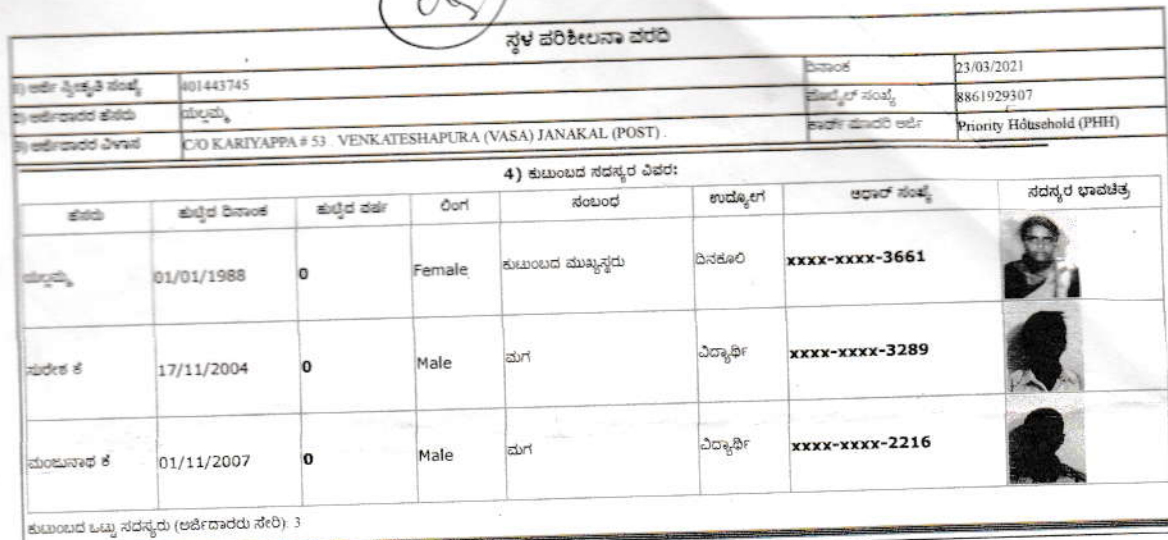 ಸ್ಥಳ ಪರಿಶೀಲನಾ ವರದಿ
1) ಅರ್ಜಿ ಸ್ವೀಕೃತಿ ಸಂಖ್ಯೆ 401443745 ದಿನಾಂಕ 23/03/2021
2) ಅರ್ಜಿದಾರರ ಹೆಸರು ಯಲ್ಲಮ್ಮ ಮೊಬೈಲ್ ಸಂಖ್ಯೆ 8861929307
3) ಅರ್ಜಿದಾರರ ವಿಳಾಸ C/O KARIYAPPA # 53 . VENKATESHAPURA (VASA) JANAKAL (POST) . ಕಾರ್ಡ್ ಮಾದರಿ ಅರ್ಜಿ Priority Household (PHH)
4) ಕುಟುಂಬದ ಸದಸ್ಯರ ವಿವರ:
ಹೆಸರು ಹುಟ್ಟಿದ ದಿನಾಂಕ ಹುಟ್ಟಿದ ವರ್ಷ ಲಿಂಗ ಸಂಬಂಧ ಉದ್ಯೋಗ ಆಧಾರ್ ಸಂಖ್ಯೆ ಸದಸ್ಯರ ಭಾವಚಿತ್ರ
ಯಲ್ಲಮ್ಮ 01/01/1988 0 Female ಕುಟುಂಬದ ಮುಖ್ಯಸ್ಥರು ದಿನಕೂಲಿ xxxx-xxxx-3661
ಸುರೇಶ ಕೆ 17/11/2004 0 Male ಮಗ ವಿದ್ಯಾರ್ಥಿ xxxx-xxxx-3289
ಮಂಜುನಾಥ ಕೆ 01/11/2007 0 Male ಮಗ ವಿದ್ಯಾರ್ಥಿ xxxx-xxxx-2216
ಕುಟುಂಬದ ಒಟ್ಟು ಸದಸ್ಯರು (ಅರ್ಜಿದಾರರು ಸೇರಿ): 3